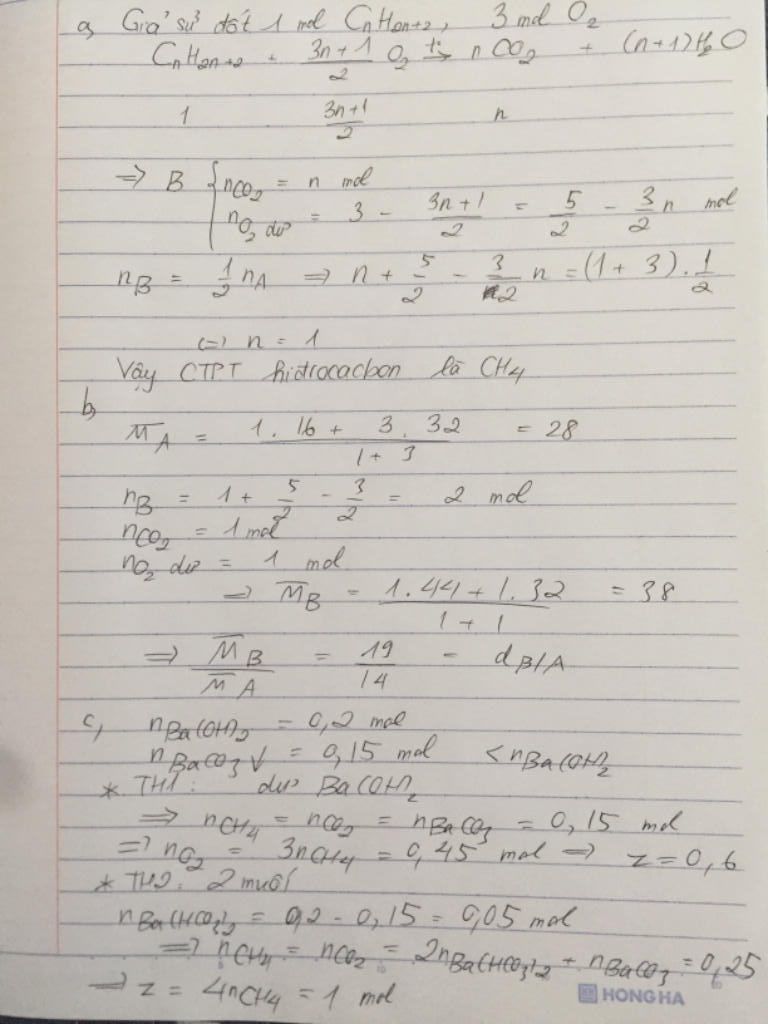 a, Giả sử đốt 1 mol CnH2n+2, 3 mol O2
CnH2n+2 + (3n+1)/2 O2 t°→ nCO2 + (n+1)H2O
1 (3n+1)/2 n
⇒ B { nCO2 = n mol
nO2 dư = 3 - (3n+1)/2 = 5/2 - 3/2 n mol
nB = 1/2 nA ⇒ n + 5/2 - 3/2 n = (1+3).1/2
(=) n = 1
Vậy CTPT hiđrocacbon là CH4
b,
M̅A = (1.16 + 3.32)/(1+3) = 28
nB = 1 + 5/2 - 3/2 = 2 mol
nCO2 = 1 mol
nO2 dư = 1 mol
⇒ M̅B = (1.44 + 1.32)/(1+1) = 38
⇒ M̅B/M̅A = 19/14 = dB/A
c, nBa(OH)2 = 0,2 mol
nBaCO3↓ = 0,15 mol < nBa(OH)2
* TH1: dư Ba(OH)2
⇒ nCH4 = nCO2 = nBaCO3 = 0,15 mol
⇒ nO2 = 3nCH4 = 0,45 mol ⇒ z = 0,6
* TH2: 2 muối
nBa(HCO3)2 = 0,2 - 0,15 = 0,05 mol
⇒ nCH4 = nCO2 = 2nBa(HCO3)2 + nBaCO3 = 0,25
⇒ z = 4nCH4 = 1 mol
HONG HA